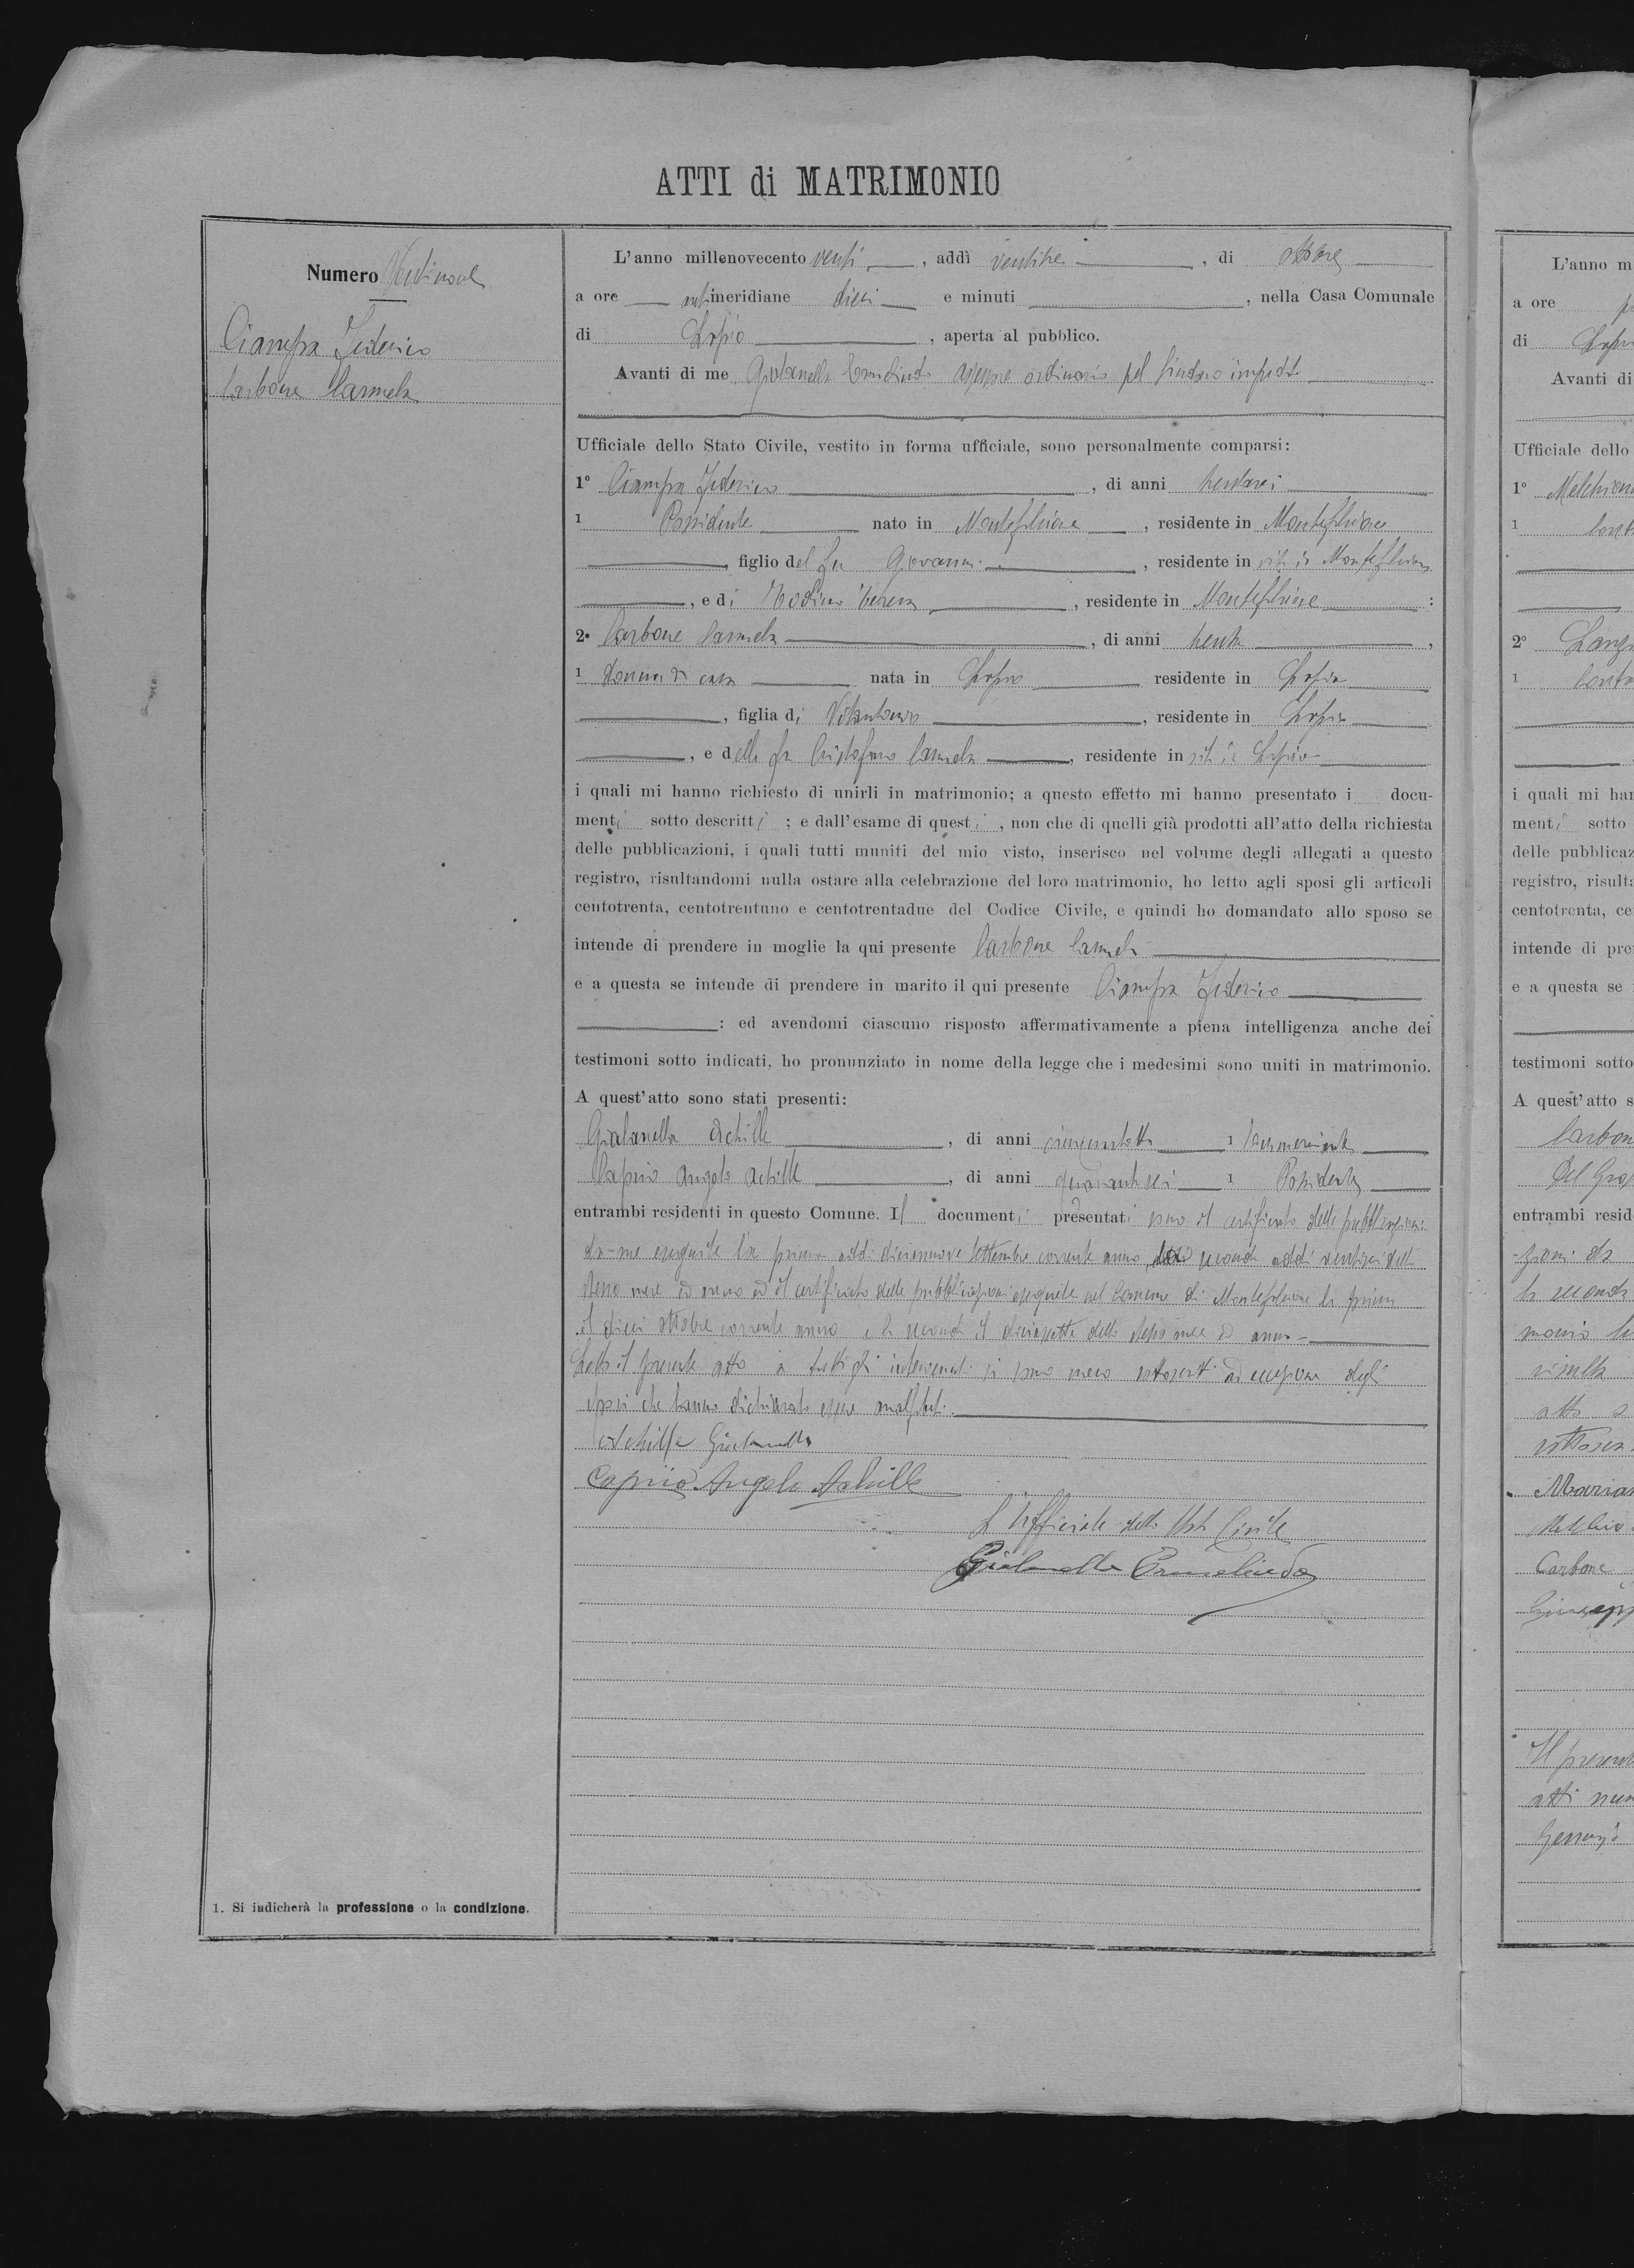 ATTI di MATRIMONIO
Numero Ventinove
Ciampa Federico
Carbone Carmela
L'anno millenovecento venti, addì ventitre, di ottobre
a ore antimeridiane dieci e minuti, nella Casa Comunale
di Lapio, aperta al pubblico.
Avanti di me Gialanella Ermelindo assessore ordinario pel Sindaco impedito
Ufficiale dello Stato Civile, vestito in forma ufficiale, sono personalmente comparsi:
1° Ciampa Federico, di anni trentasei
1 Possidente nato in Montefalcione, residente in Montefalcione
, figlio del fu Giovanni, residente in vita in Montefalcione
, e di Teresa, residente in Montefalcione:
2° Carbone Carmela, di anni trenta,
1 donna di casa nata in Lapio residente in Lapio
, figlia di Vitantonio, residente in Lapio
, e della fu Cristofaro Carmela, residente in vita in Lapio
i quali mi hanno richiesto di unirli in matrimonio; a questo effetto mi hanno presentato i docu-
menti sotto descritti; e dall'esame di questi, non che di quelli già prodotti all'atto della richiesta
delle pubblicazioni, i quali tutti muniti del mio visto, inserisco nel volume degli allegati a questo
registro, risultandomi nulla ostare alla celebrazione del loro matrimonio, ho letto agli sposi gli articoli
centotrenta, centotrentuno e centotrentadue del Codice Civile, e quindi ho domandato allo sposo se
intende di prendere in moglie la qui presente Carbone Carmela
e a questa se intende di prendere in marito il qui presente Ciampa Federico
: ed avendomi ciascuno risposto affermativamente a piena intelligenza anche dei
testimoni sotto indicati, ho pronunziato in nome della legge che i medesimi sono uniti in matrimonio.
A quest'atto sono stati presenti:
Gialanella Achille, di anni cinquantotto 1 Commerciante
Caprio Angelo Achille, di anni quarantasei 1 Possidente
entrambi residenti in questo Comune. I documenti presentati sono il certificato delle pubblicazioni
da me eseguite la prima addì diciannove Settembre corrente anno, la seconda addì ventisei dello
stesso mese ed anno ed il certificato delle pubblicazioni eseguite nel Comune di Montefalcione la prima
il dieci ottobre corrente anno e la seconda il diciassette dello stesso mese ed anno
Letto il presente atto a tutti gli intervenuti si sono meco sottoscritti ad eccezione degli
sposi che hanno dichiarato essere analfabeti.
Achille Gialanella
Caprio Angelo Achille
L'Ufficiale dello Stato Civile
Gialanella Ermelindo
1. Si indicherà la professione o la condizione.
L'anno m
a ore
di
Avanti di
Ufficiale dello
1°
1
2°
1
i quali mi har
menti sotto
delle pubblicaz
registro, risulta
centotrenta, ce
intende di pre
e a questa se
testimoni sotto
A quest'atto s
Carbon
entrambi resid
la seconda
Carbone
Il present
atti